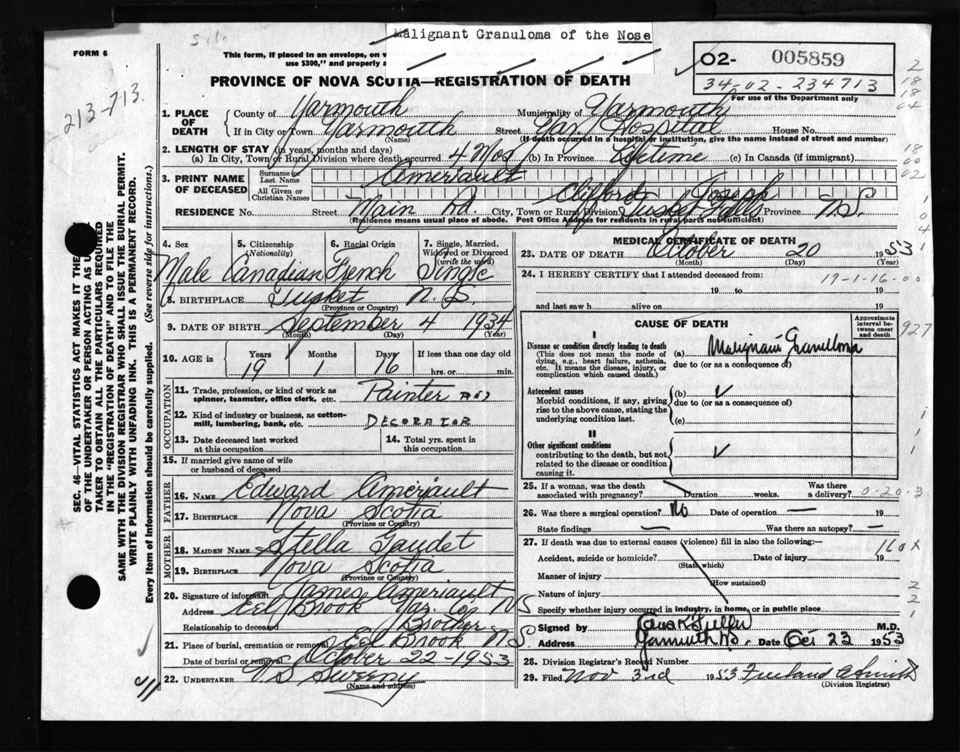 Malignant Granuloma of the Nose
FORM 6
This form, if placed in an envelope, on
use $300," and properly
02- 005859
34-02-234713
For use of the Department only
PROVINCE OF NOVA SCOTIA—REGISTRATION OF DEATH
213-713.
1. PLACE OF DEATH
County of Yarmouth Municipality of Yarmouth
If in City or Town Yarmouth Street Yar. Hospital House No.
(Name) (If death occurred in a hospital or institution, give the name instead of street and number)
2. LENGTH OF STAY (in years, months and days)
(a) In City, Town or Rural Division where death occurred 4 Mos (b) In Province Lifetime (c) In Canada (if immigrant)
3. PRINT NAME OF DECEASED
Surname or Last Name Ameriault
All Given or Christian Names Clifford Joseph
RESIDENCE No. Street Main Rd. City, Town or Rural Division Tusket Falls Province N.S.
(Residence means usual place of abode. Post Office Address for residents in rural parts not sufficient)
4. Sex 5. Citizenship (Nationality) 6. Racial Origin 7. Single, Married, Widowed or Divorced (write the word)
Male Canadian French Single
8. BIRTHPLACE Tusket N.S.
(Province or Country)
9. DATE OF BIRTH September 4 1934
(Month) (Day) (Year)
10. AGE in Years Months Days If less than one day old
19 1 16 hrs. or min.
OCCUPATION
11. Trade, profession, or kind of work as spinner, teamster, office clerk, etc. Painter AND
12. Kind of industry or business, as cotton-mill, lumbering, bank, etc. DECORATOR
13. Date deceased last worked at this occupation
14. Total yrs. spent in this occupation
15. If married give name of wife or husband of deceased
FATHER
16. NAME Edward Ameriault
17. BIRTHPLACE Nova Scotia
(Province or Country)
MOTHER
18. MAIDEN NAME Stella Gaudet
19. BIRTHPLACE Nova Scotia
(Province or Country)
20. Signature of informant James Ameriault
Address Eel Brook Yar. Co NS
Relationship to deceased Brother
21. Place of burial, cremation or removal Eel Brook N S
Date of burial or removal October 22-1953
22. UNDERTAKER V S Sweeny
(Name and address)
MEDICAL CERTIFICATE OF DEATH
23. DATE OF DEATH October 20 1953
(Month) (Day) (Year)
24. I HEREBY CERTIFY that I attended deceased from:
19-1-16-00
19 to 19
and last saw h alive on 19
CAUSE OF DEATH
Approximate interval between onset and death
927
I
Disease or condition directly leading to death (a) Malignant Granuloma
(This does not mean the mode of dying, e.g., heart failure, asthenia, etc. It means the disease, injury, or complication which caused death.)
due to (or as a consequence of)
Antecedent causes (b)
Morbid conditions, if any, giving rise to the above cause, stating the underlying condition last.
due to (or as a consequence of)
(c)
II
Other significant conditions
contributing to the death, but not related to the disease or condition causing it.
25. If a woman, was the death associated with pregnancy? Duration weeks. Was there a delivery? 0-20-3
26. Was there a surgical operation? No Date of operation
State findings Was there an autopsy?
27. If death was due to external causes (violence) fill in also the following:—
Accident, suicide or homicide? Date of injury 19
(State which)
160x
Manner of injury
(How sustained)
Nature of injury
Specify whether injury occurred in industry, in home, or in public place
Signed by Fuller M.D.
Address Yarmouth NS. Date Oct 23 1953
28. Division Registrar's Record Number
29. Filed Nov 3rd 1953
(Division Registrar)
SEC. 46—VITAL STATISTICS ACT MAKES IT THE
OF THE UNDERTAKER OR PERSON ACTING AS U
TAKER TO OBTAIN ALL THE PARTICULARS REQUIRED
IN THE "REGISTRATION OF DEATH" AND TO FILE THE
SAME WITH THE DIVISION REGISTRAR WHO SHALL ISSUE THE BURIAL PERMIT.
WRITE PLAINLY WITH UNFADING INK. THIS IS A PERMANENT RECORD.
Every item of information should be carefully supplied. (See reverse side for instructions.)